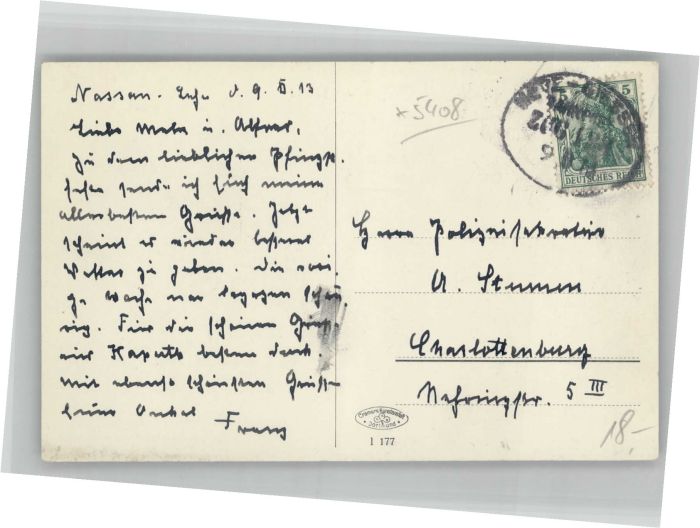 Nassau. Lahn d. 9. V. 13
Liebe Meta u. Alfred,
Zu dem lieblichen Pfingst-
feste sende ich Euch meine
allerbesten Grüsse. Jetzt
scheint es wieder besseres
Wetter zu geben. Die vori-
ge Woche war dagegen schau-
rig. Für die schönen Grüsse
aus Kaputh besten Dank.
Mit ebenso schönsten Grüssen
Euer Onkel
Franz
*5408
DEUTSCHES REICH
5
Herrn Polizeisekretär
A. Stumm
Charlottenburg
Nehringstr. 5 III
Cramers Kunstanstalt
Dortmund
1 177
18-